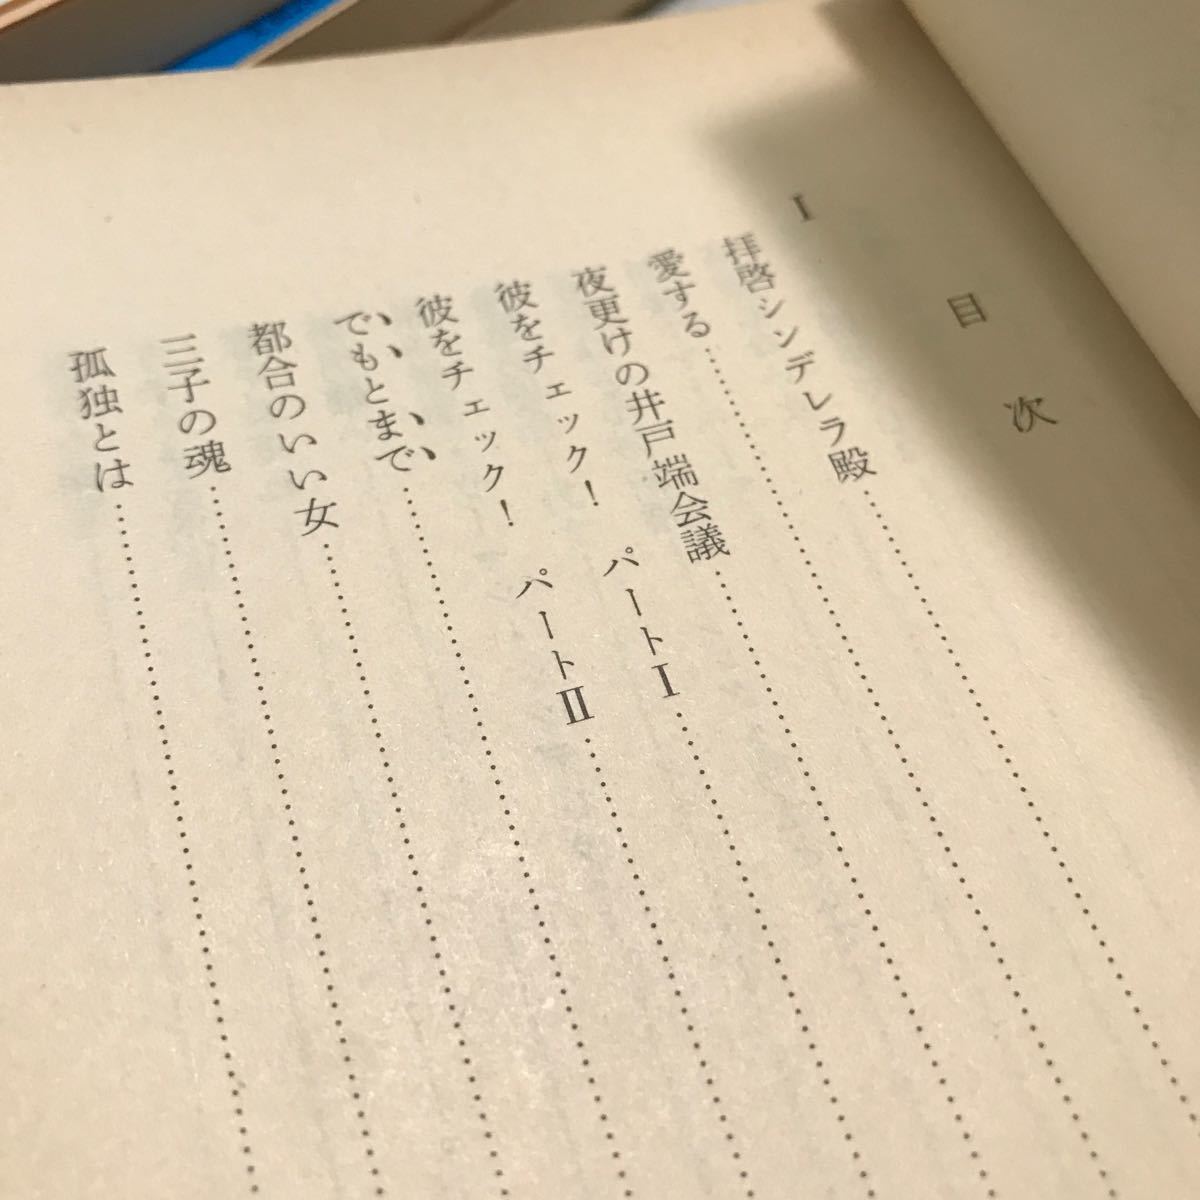 目次
I
拝啓シンデレラ殿
愛する
夜更けの井戸端会議
彼をチェック！ パートI
彼をチェック！ パートII
でもとまで
都合のいい女
三子の魂
孤独とは